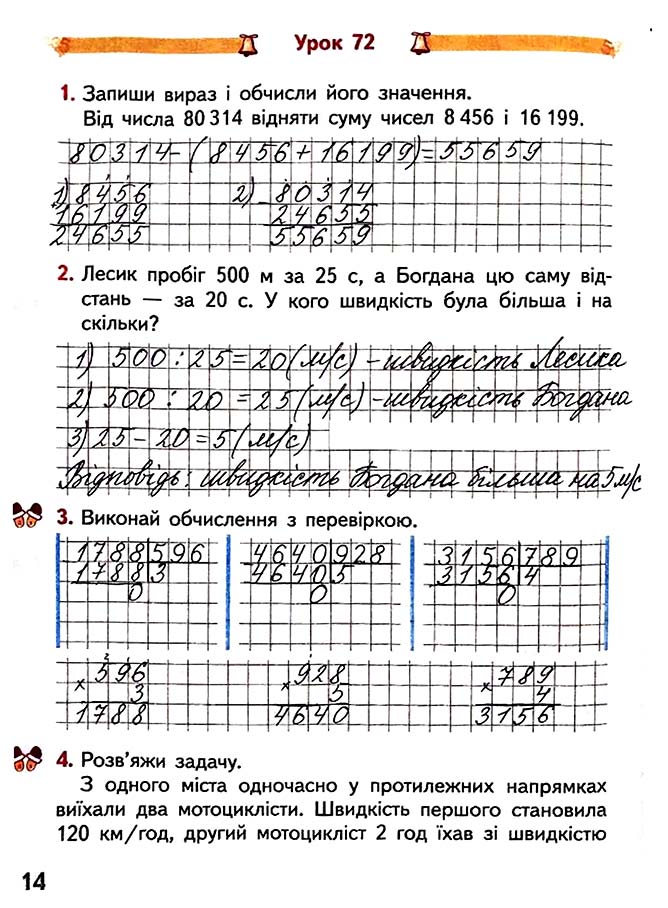 Урок 72
1. Запиши вираз і обчисли його значення.
Від числа 80 314 відняти суму чисел 8 456 і 16 199.
80314-(8456+16199)=55659
1) 8456 2) 80314
16199 24655
24655 55659
2. Лесик пробіг 500 м за 25 с, а Богдана цю саму від-
стань — за 20 с. У кого швидкість була більша і на
скільки?
1) 500 : 25 = 20 (м/с) - швидкість Лесика
2) 500 : 20 = 25 (м/с) - швидкість Богдана
3) 25 - 20 = 5 (м/с)
Відповідь: швидкість Богдана більша на 5 м/с
3. Виконай обчислення з перевіркою.
1788596 4640928 3156789
17883 46405 31564
0 0 0
2
596 928 789
× 3 × 5 × 4
1788 4640 3156
4. Розв'яжи задачу.
З одного міста одночасно у протилежних напрямках
виїхали два мотоциклісти. Швидкість першого становила
120 км/год, другий мотоцикліст 2 год їхав зі швидкістю
14